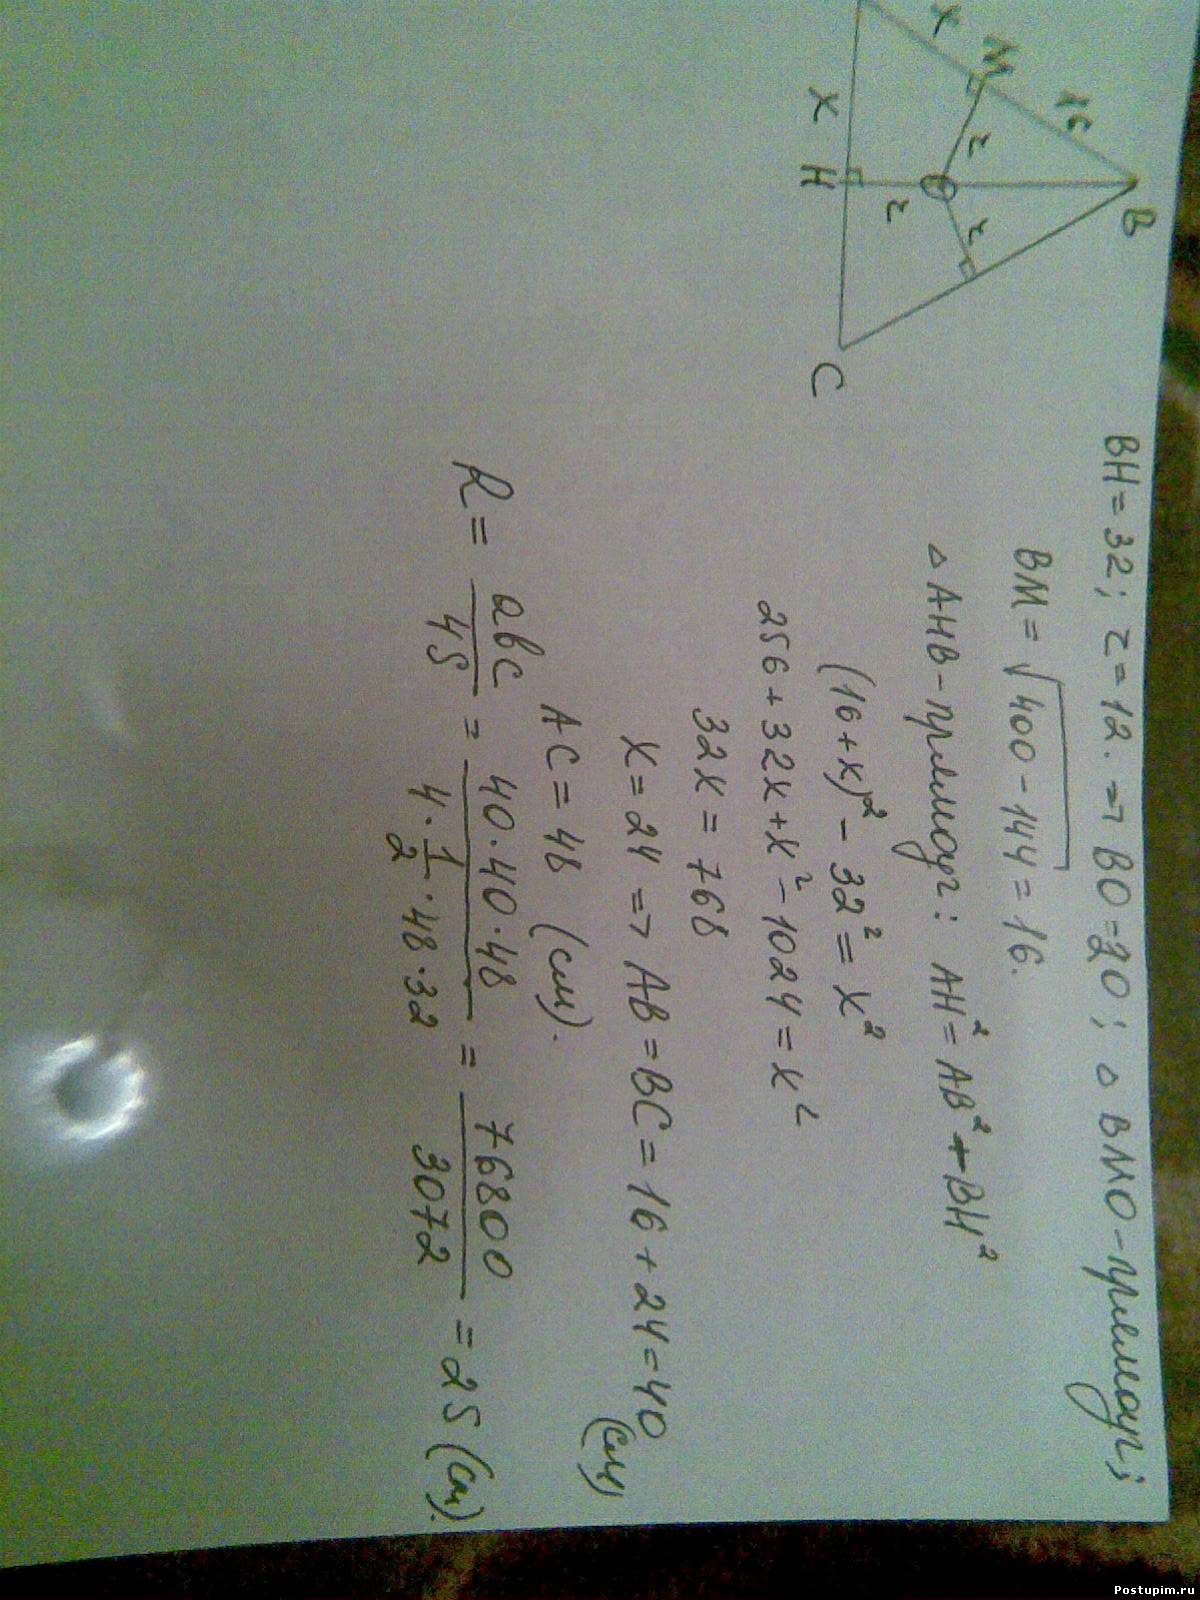 BH = 32; r = 12. ⇒ BO = 20; △ BMO - прямоуг;
BM = √400 - 144 = 16.
△ AHB - прямоуг: AH² = AB² - BH²
(16 + x)² - 32² = x²
256 + 32x + x² - 1024 = x²
32x = 768
x = 24 ⇒ AB = BC = 16 + 24 = 40 (см)
AC = 48 (см).
R = abc / 4S = 40 · 40 · 48 / 4 · 1/2 · 48 · 32 = 76800 / 3072 = 25 (см).
B
16
M
x
r
O
r
r
x
H
C
Postupim.ru